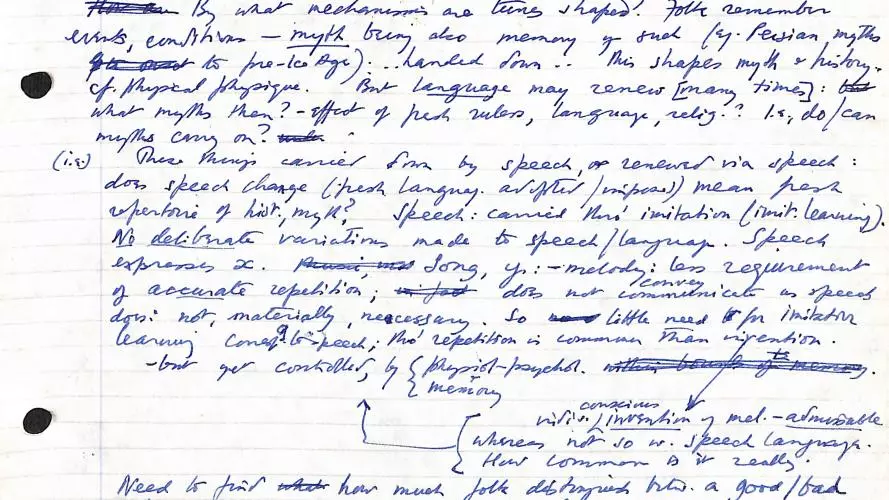 By what mechanisms are tunes shaped? Folk remember
events, conditions — myth being also memory of such (eg. Persian myths
to pre-Ice Age). .. handed down .. This shapes myth & history.
cf. physical physique. But language may renew [many times]:
what myths then? — effect of fresh rulers, language, relig.? I.e., do/can
myths carry on?
(i.e.) These things carried down by speech, or renewed via speech:
does speech change (fresh languag. adopted/imposed) mean fresh
repertoire of hist., myth? Speech: carried thro' imitation (imit. learning).
No deliberate variations made to speech/language. Speech
expresses x. Song, : — melody: less requirement
of accurate repetition; does not convey communicate as speech
does: not, materially, necessary. So little need for imitation
learning to speech; tho' repetition is commoner than invention.
-but get controlled, by { physiol-psychol.
{ memory
conscious
indiv./invention of mel. — admissable
whereas not so w. speech language.
How common is it really.
Need to find how much folk distinguish betw. a good/bad